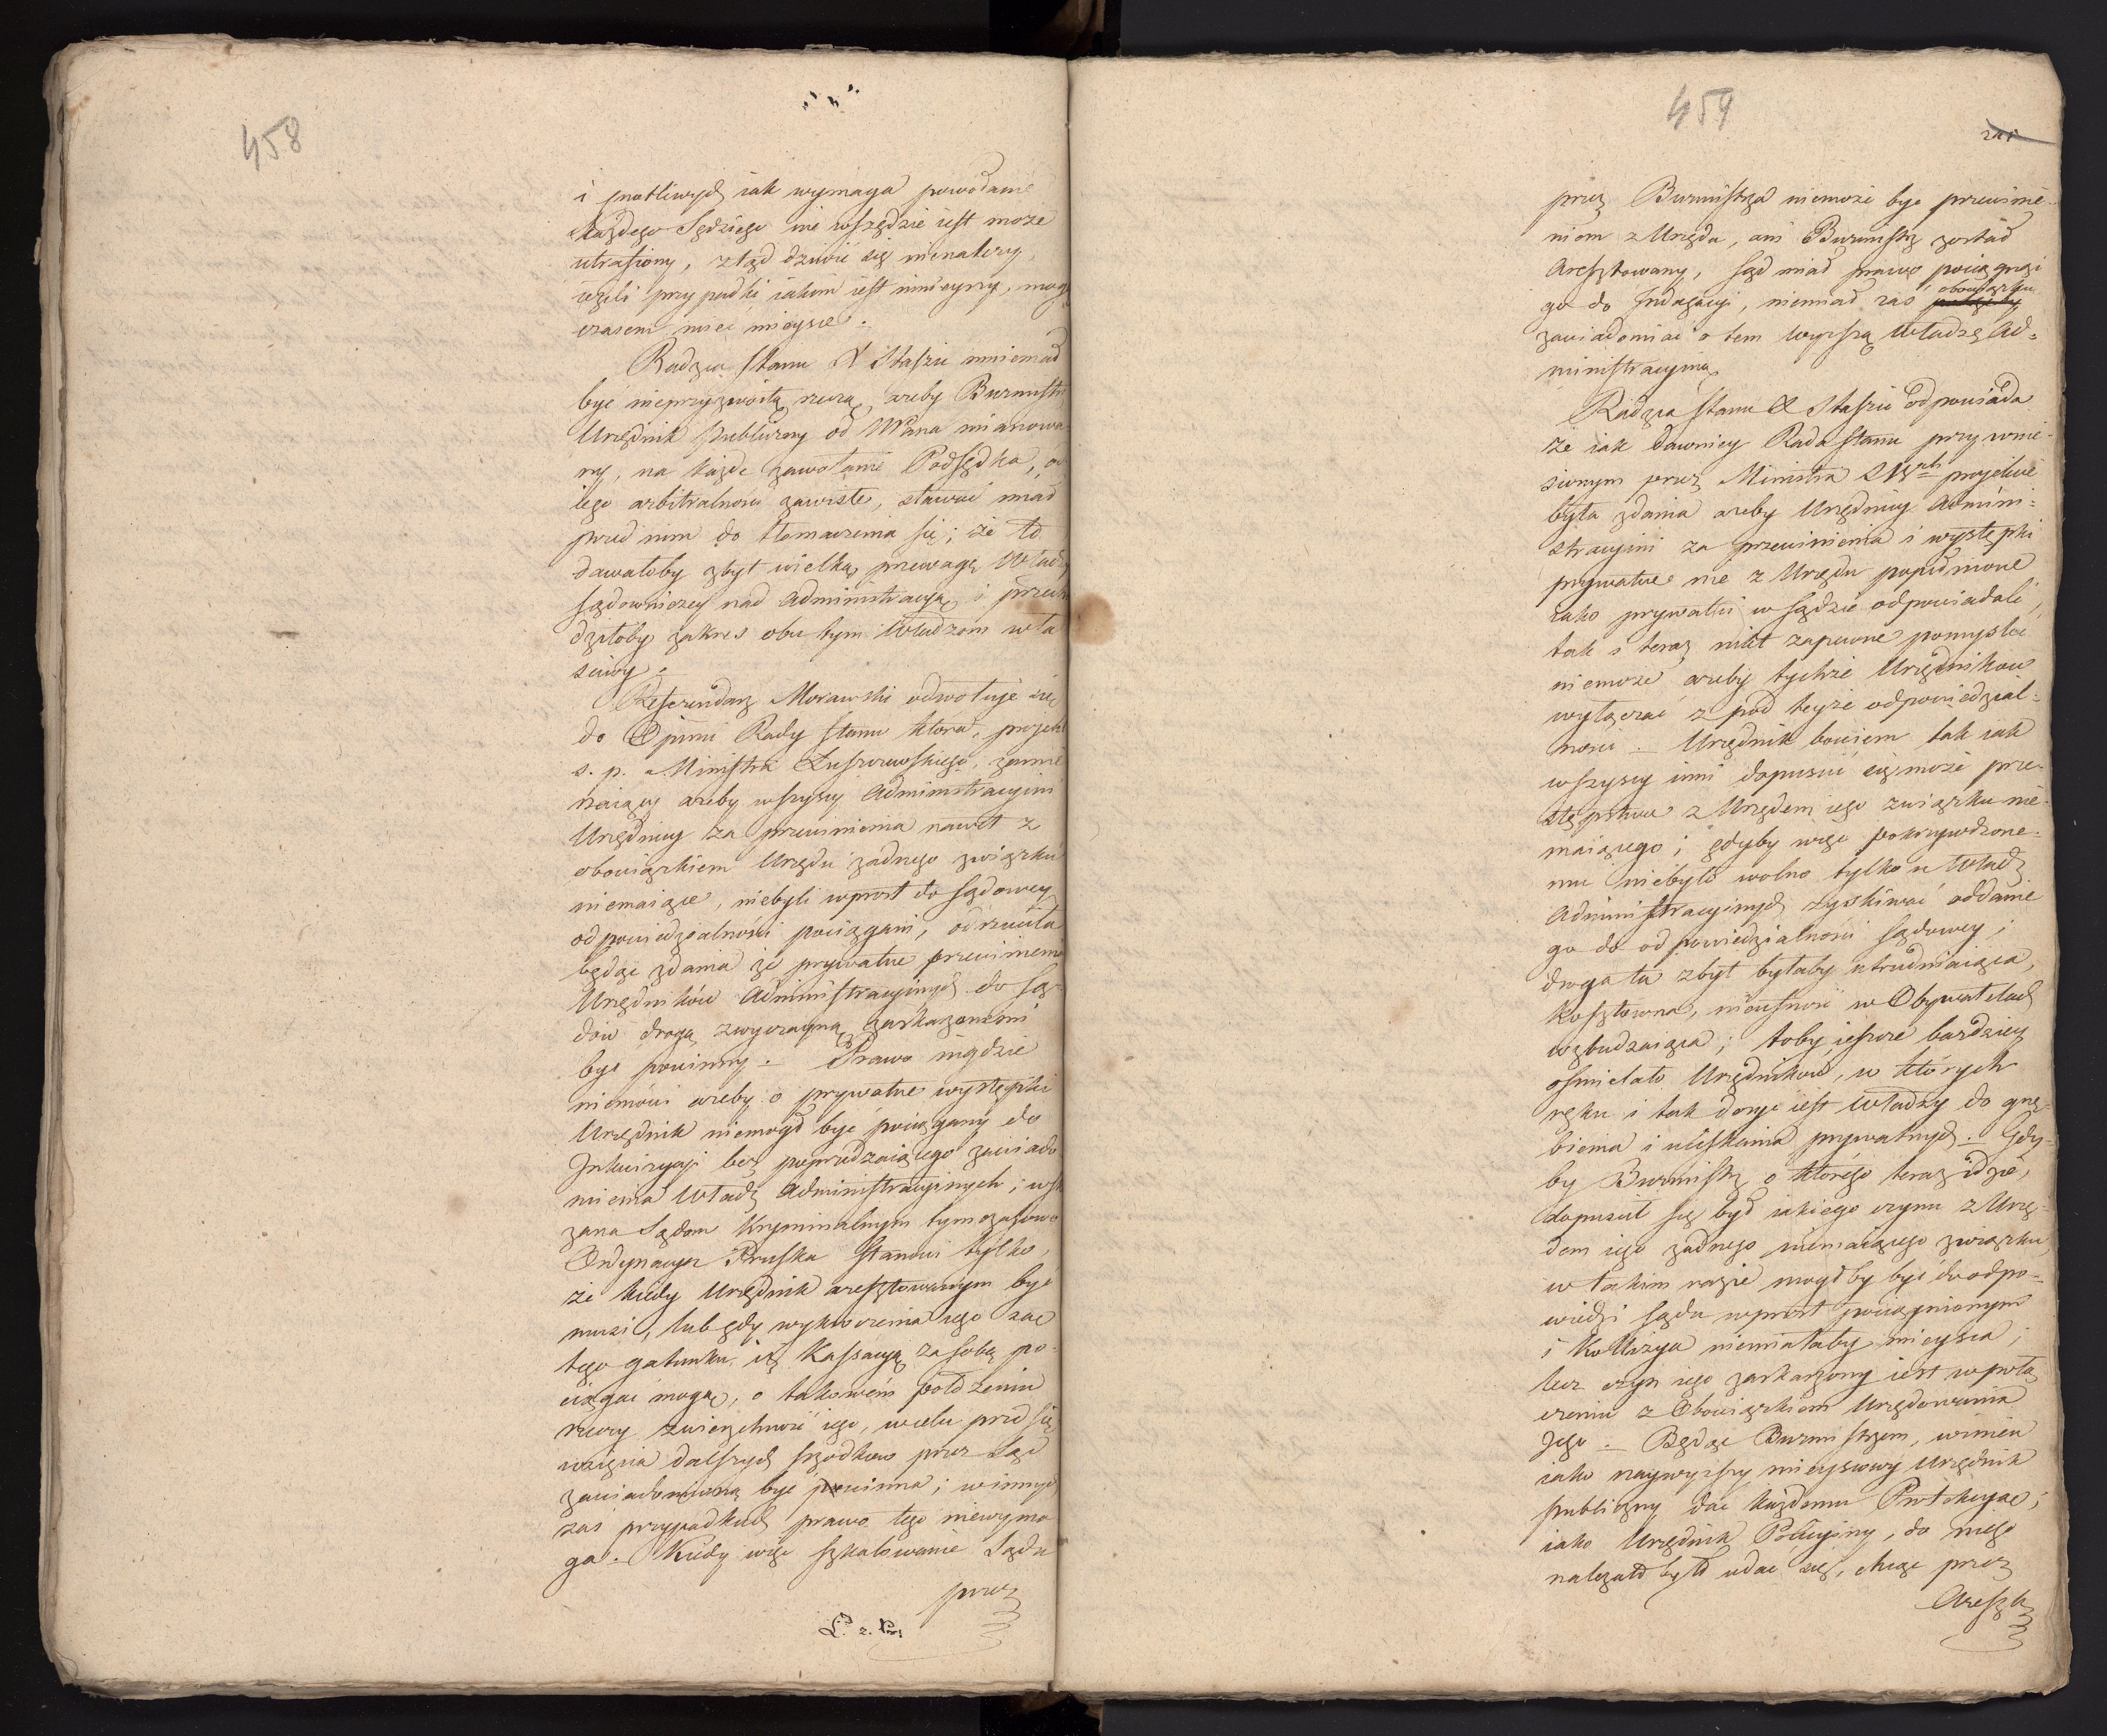 458
i cnotliwych iak wymaga powołanie
każdego Sędziego nie wszędzie iest może
utrafiony, ztąd dziwić się nienależy,
ieżeli przypadki iakim iest ninieyszy, mogą
czasem mieć mieysce.
Radzca Stanu X Staszic mniemał
być nieprzyzwoitą rzeczą, ażeby Burmistrz
Urzędnik publiczny od Mana mianowa-
ny, na każde zawołanie Podsędka, od
iego arbitralności zawisłe, stawać miał
przed nim do tłomaczenia się; że to
dawałoby zbyt wielką przewagę Władzy
sądowniczey nad Administracyą, i
działoby zakres obu tym Władzom wła
sciwy.
Referendarz Morawski odwołuje się
do Opinii Rady Stanu która, projekt
s. p. Ministra Łuszczewskiego, zamie
rzaiący ażeby wszyscy Administracyjni
Urzędnicy za przewinienia nawet z
obowiązkiem Urzędu żadnego związku
niemaiące, niebyli wprost do sądowey
odpowiedzialności pociągani, odrzuciła
będąc zdania że prywatne przewinienia
Urzędników Administracyjnych do Są-
dów drogą zwyczayną zaskarzonemi
być powinny. Prawo nigdzie
niemówi ażeby o prywatne występki
Urzędnik niemógł być pociągany do
Inkwizycyi bez poprzedzaiącego zawiado
mienia Władz Administracyjnych; wska
zana Sądom Kryminalnym tymczasowo
Ordynacya Pruska stanowi tylko,
że kiedy Urzędnik aresztowanym być
musi, lub gdy wykroczenia iego są
tego gatunku, iż Kassacyą za sobą po-
ciągać mogą, o takowém położeniu
rzeczy zwierzchność iego, w celu przedsię
wzięcia dalszych szrodków przez Sąd
zawiadomioną być powinna; w innych
zaś przypadkach prawo tego niewyma
ga. Kiedy więc szkalowanie Sądu
przez
459
przez Burmistrza niemoże być przewinie-
niem z Urzędu, ani Burmistrz został
Aresztowany, Sąd miał prawo pociągnąć
go do Indagacyi, niemiał zaś
obowiązku
zawiadomiać o tem wyższą Władzę Ad-
ministracyjną.
Radzca Stanu X Staszic odpowiada
że iak dawniey Rada Stanu przy wnie-
sionym przez Ministra projekcie
była zdania ażeby Urzędnicy Admini-
stracyjni za przewinienia i występki
prywatne nie z Urzędu popełnione
iako prywatni w Sądzie odpowiadali,
tak i teraz nikt zapewne pomyśleć
niemoże ażeby tychże Urzędników
wyłączać z pod teyże odpowiedzial-
ności. Urzędnik bowiem tak iak
wszyscy inni dopuścić się może prze-
stępstwa z Urzędem iego związku nie-
maiącego; gdyby więc pokrzywdzone-
mu niebyło wolno tylko u Władz
Administracyjnych zyskiwać oddanie
go do odpowiedzialności sądowey;
droga ta zbyt byłaby utrudniaiąca,
kosztowna, nieufność w Obywatelach
wzbudzaiąca; toby ieszcze bardziey
ośmielało Urzędników, w których
ręku i tak dosyć iest Władzy do gnę-
bienia i uciskania prywatnych. Gdy-
by Burmistrz o którego teraz idzie,
dopuścił się był iakiego czynu z Urzę-
dem iego żadnego niemaiącego związku
w takim razie mógłby być do odpo-
wiedzi Sądu wprost pociągnionym
i Kollizya niemiałaby mieysca;
lecz czyn iego zaskarzony iest w połą
czeniu z Obowiązkiem Urzędowania
Jego. Będąc Burmistrzem, winien
iako naywyższy mieyscowy Urzędnik
publiczny dać każdemu Protekcyą;
iako Urzędnik Policyjny, do niego
należało było udać się, chcąc przez
Areszt